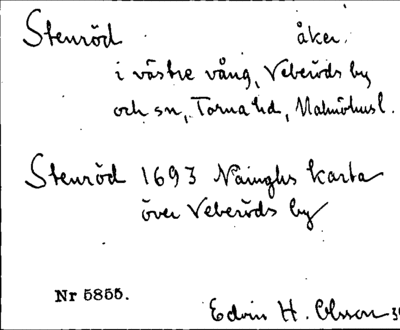 Stenröd åker.
i västre vång, Veberöds by
och sn, Torna hd, Malmöhusl.
Stenröd 1693 karta
över Veberöds by
Nr 5855.
Edvin H. Olsson